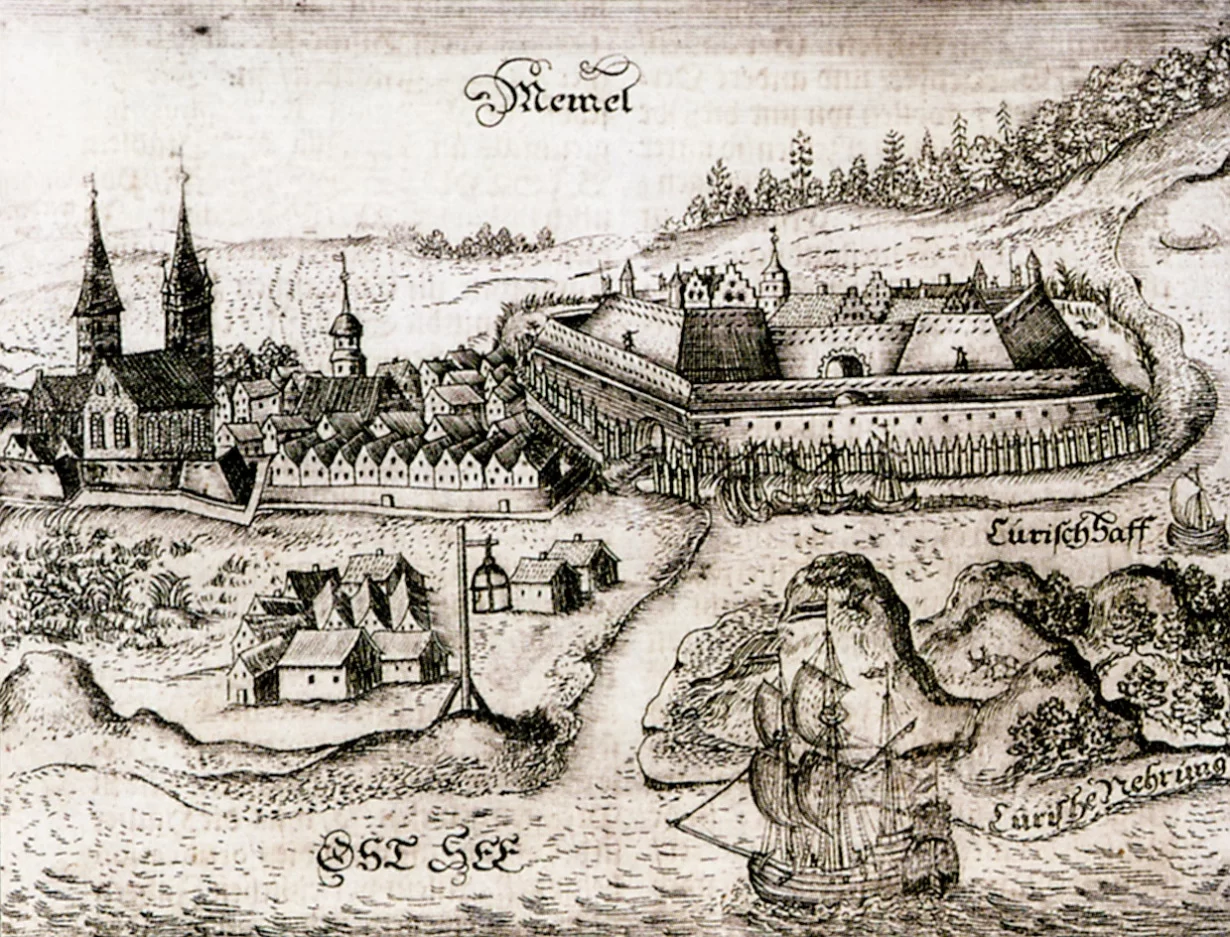 Memel
Curisch Haff
Curische Nehrung
OST SEE